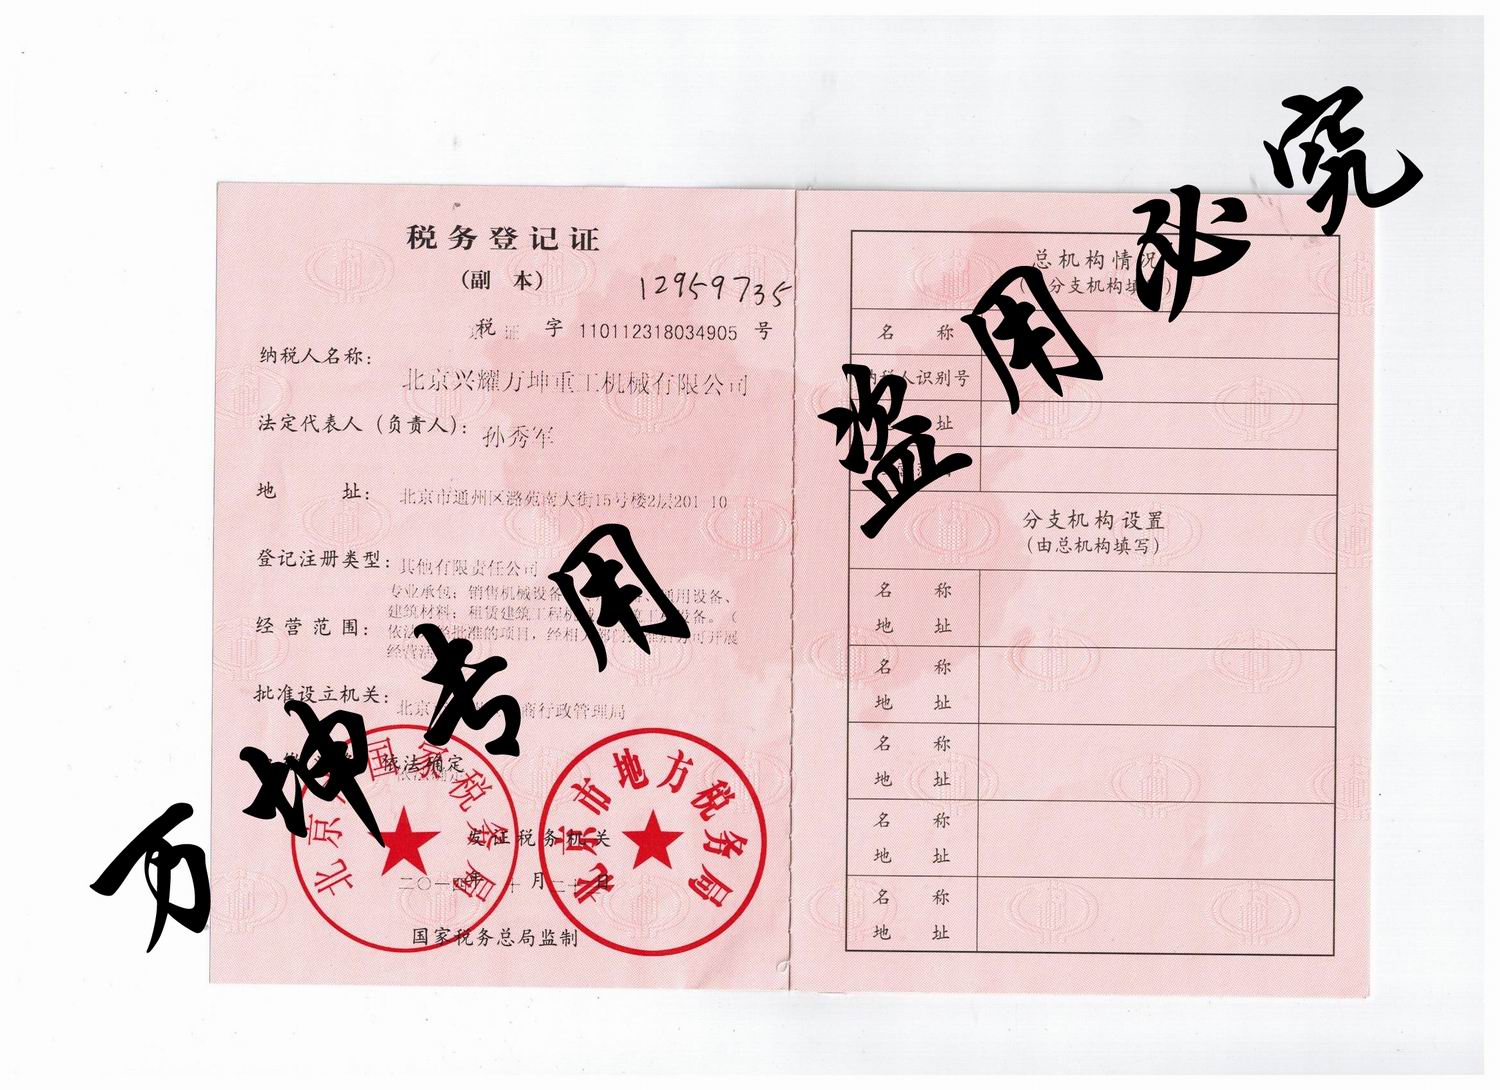 税务登记证
(副 本)
12959735
京税 证 字 110112318034905 号
纳税人名称:
北京兴耀万坤重工机械有限公司
法定代表人(负责人):
孙秀军
地 址:
北京市通州区潞苑南大街15号楼2层201-10
登记注册类型:
其他有限责任公司
经营范围:
专业承包;销售机械设备 用设备、
建筑材料;租赁建筑工程机 设备。(
依法 批准的项目,经相 部门 可开展
经营活
批准设立机关:
北京 商行政管理局
依法确定
依法确定
发证税务机关
二〇一 年 十 月二十 日
国家税务总局监制
北京 国家税务局
北京市地方税务局
总机构情况
( 分支机构填 )
名 称
纳税人识别号
址
分支机构设置
(由总机构填写)
名 称
地 址
名 称
地 址
名 称
地 址
名 称
地 址
名 称
地 址
万坤专用 盗用必究